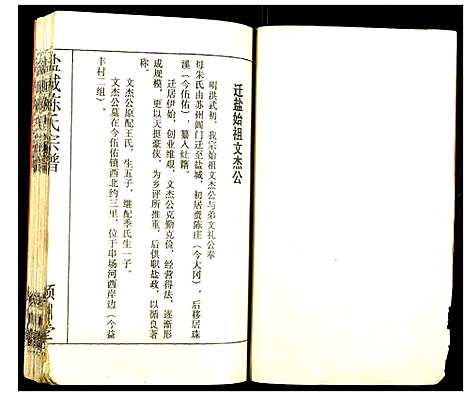 迁盐始祖文杰公
明洪武初，我宗始祖文杰公与弟文礼公奉
母朱氏由苏州阊门迁至盐城，初居贲陈庄（今大冈），后移居珠
溪（今伍佑），纂入灶籍。
迁居伊始，创业维艰，文杰公克勤克俭，经营得法，逐渐形
成规模，更以天挺豪侠，为乡评所推重，后供职盐政，以循良著
称。
文杰公原配王氏，生五子，继配季氏生一子。
文杰公墓在今伍佑镇西北约三里，位于串场河西岸边（今益
丰村二组）。
盐城陈氏宗谱